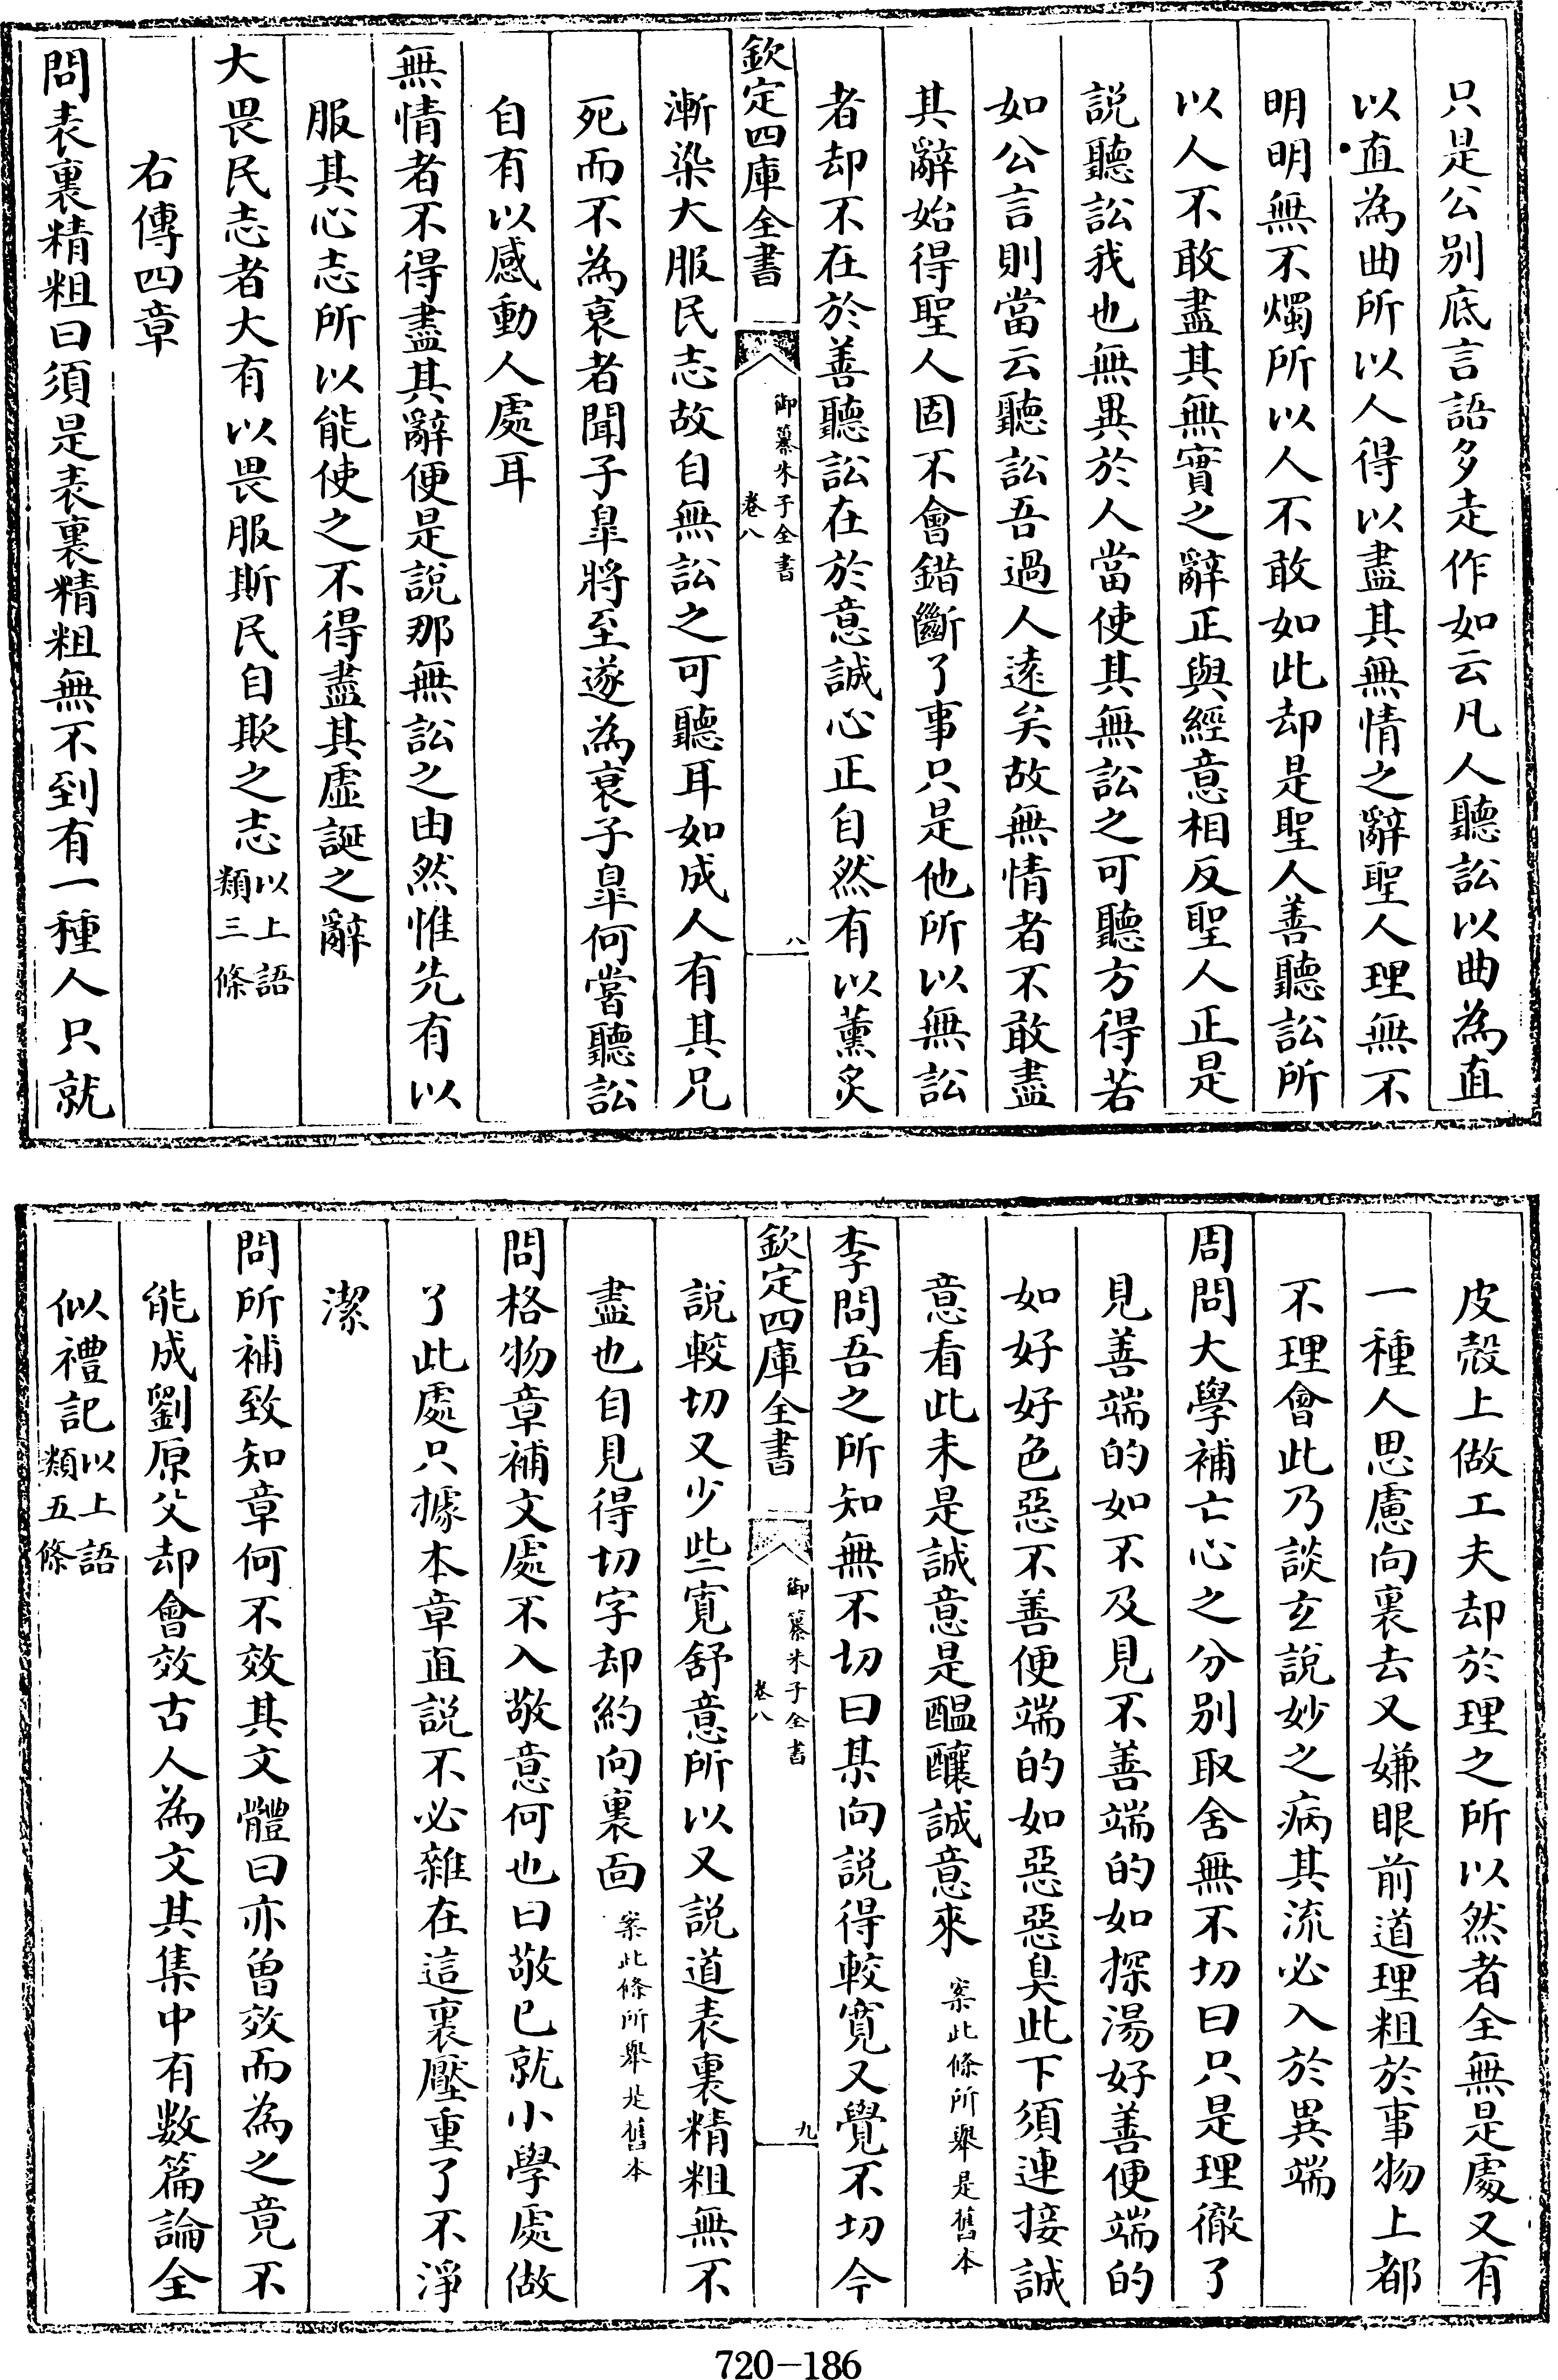 只是公别底言語多走作如云凡人聽訟以曲為直
以直為曲所以人得以盡其無情之辭聖人理無不
明明無不燭所以人不敢如此却是聖人善聽訟所
以人不敢盡其無實之辭正與經意相反聖人正是
説聽訟我也無異於人當使其無訟之可聽方得若
如公言則當云聽訟吾過人逺矣故無情者不敢盡
其辭始得聖人固不會錯斷了事只是他所以無訟
者却不在於善聽訟在於意誠心正自然有以薰炙
欽定四庫全書
御纂朱子全書
卷八
八
漸染大服民志故自無訟之可聽耳如成人有其兄
死而不為衰者聞子臯將至遂為衰子臯何嘗聽訟
自有以感動人處耳
無情者不得盡其辭便是説那無訟之由然惟先有以
服其心志所以能使之不得盡其虚誕之辭
大畏民志者大有以畏服斯民自欺之志以上語類三條
右傳四章
問表裏精粗曰須是表裏精粗無不到有一種人只就
皮殻上做工夫却於理之所以然者全無是處又有
一種人思慮向裏去又嫌眼前道理粗於事物上都
不理會此乃談玄説妙之病其流必入於異端
周問大學補亡心之分别取舍無不切曰只是理徹了
見善端的如不及見不善端的如探湯好善便端的
如好好色惡不善便端的如惡惡臭此下須連接誠
意看此未是誠意是醖釀誠意來案此條所舉是舊本
李問吾之所知無不切曰某向説得較寛又覺不切今
欽定四庫全書
御纂朱子全書
卷八
九
説較切又少些寛舒意所以又説道表裏精粗無不
盡也自見得切字却約向裏面案此條所舉是舊本
問格物章補文處不入敬意何也曰敬已就小學處做
了此處只據本章直説不必雜在這裏壓重了不淨
潔
問所補致知章何不效其文體曰亦曾效而為之竟不
能成劉原父却會效古人為文其集中有數篇論全
似禮記以上語類五條
720-186